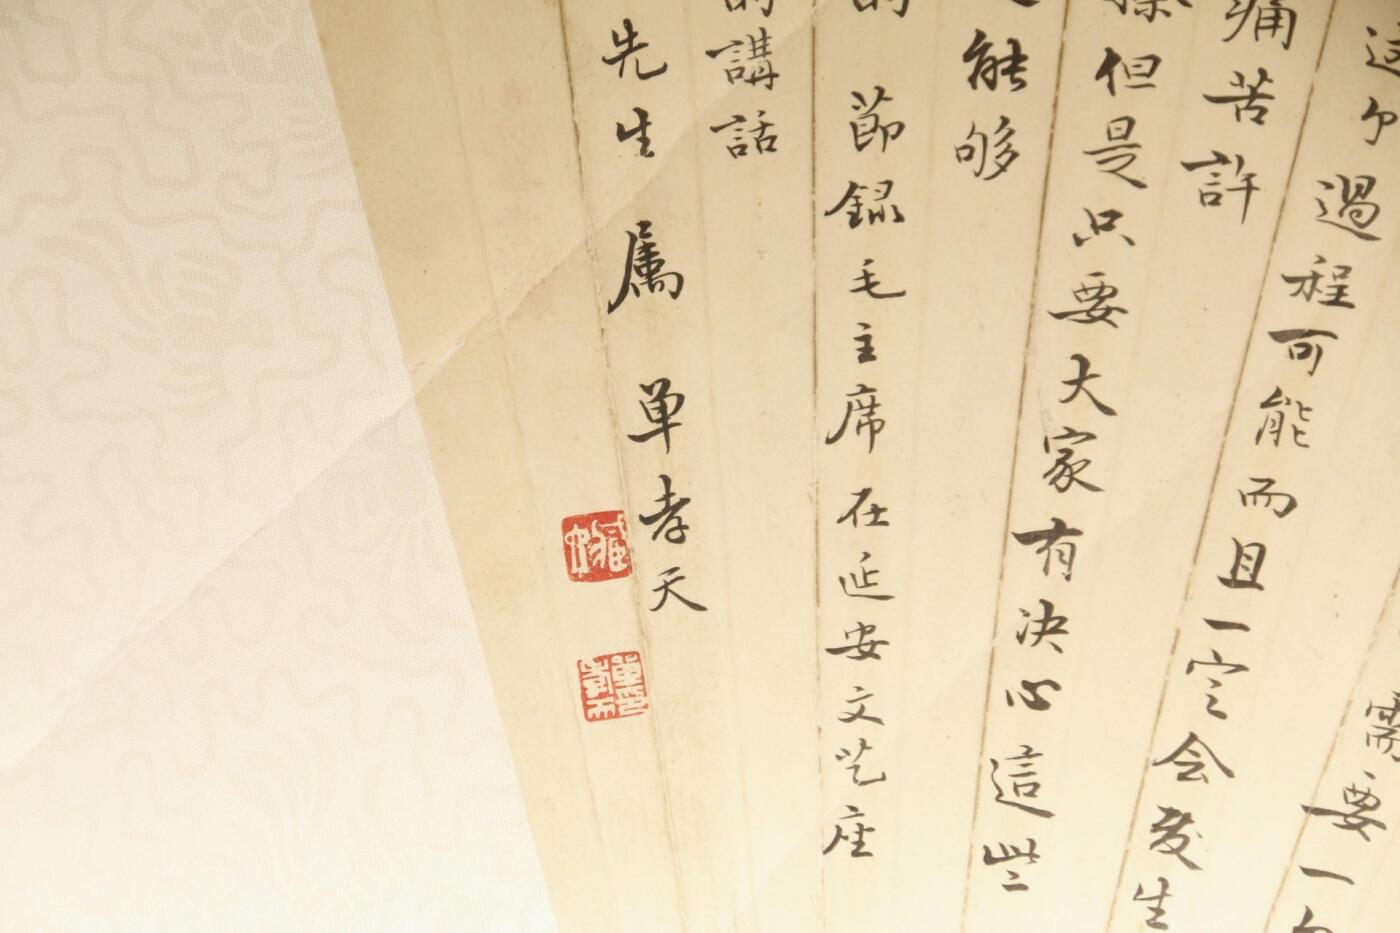 過程可能而且一定会发生
痛苦許
需要一
但是只要大家有决心這些
能够
節録毛主席在延安文艺座
的講話
先生属 单孝天
单孝天印